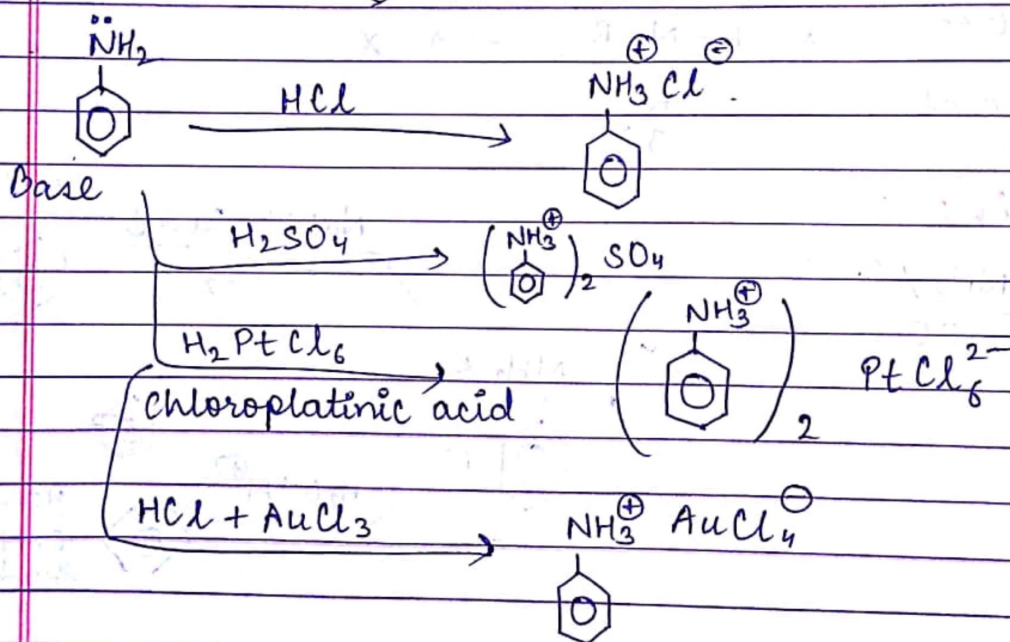 N̈H₂
HCl
⊕ ⊖
NH₃ Cl .
Base
H₂SO₄
( NH₃⊕ )₂ SO₄
H₂PtCl₆
chloroplatinic acid .
( NH₃⊕ )₂ PtCl₆²⁻
HCl + AuCl₃
NH₃⊕ AuCl₄⊖